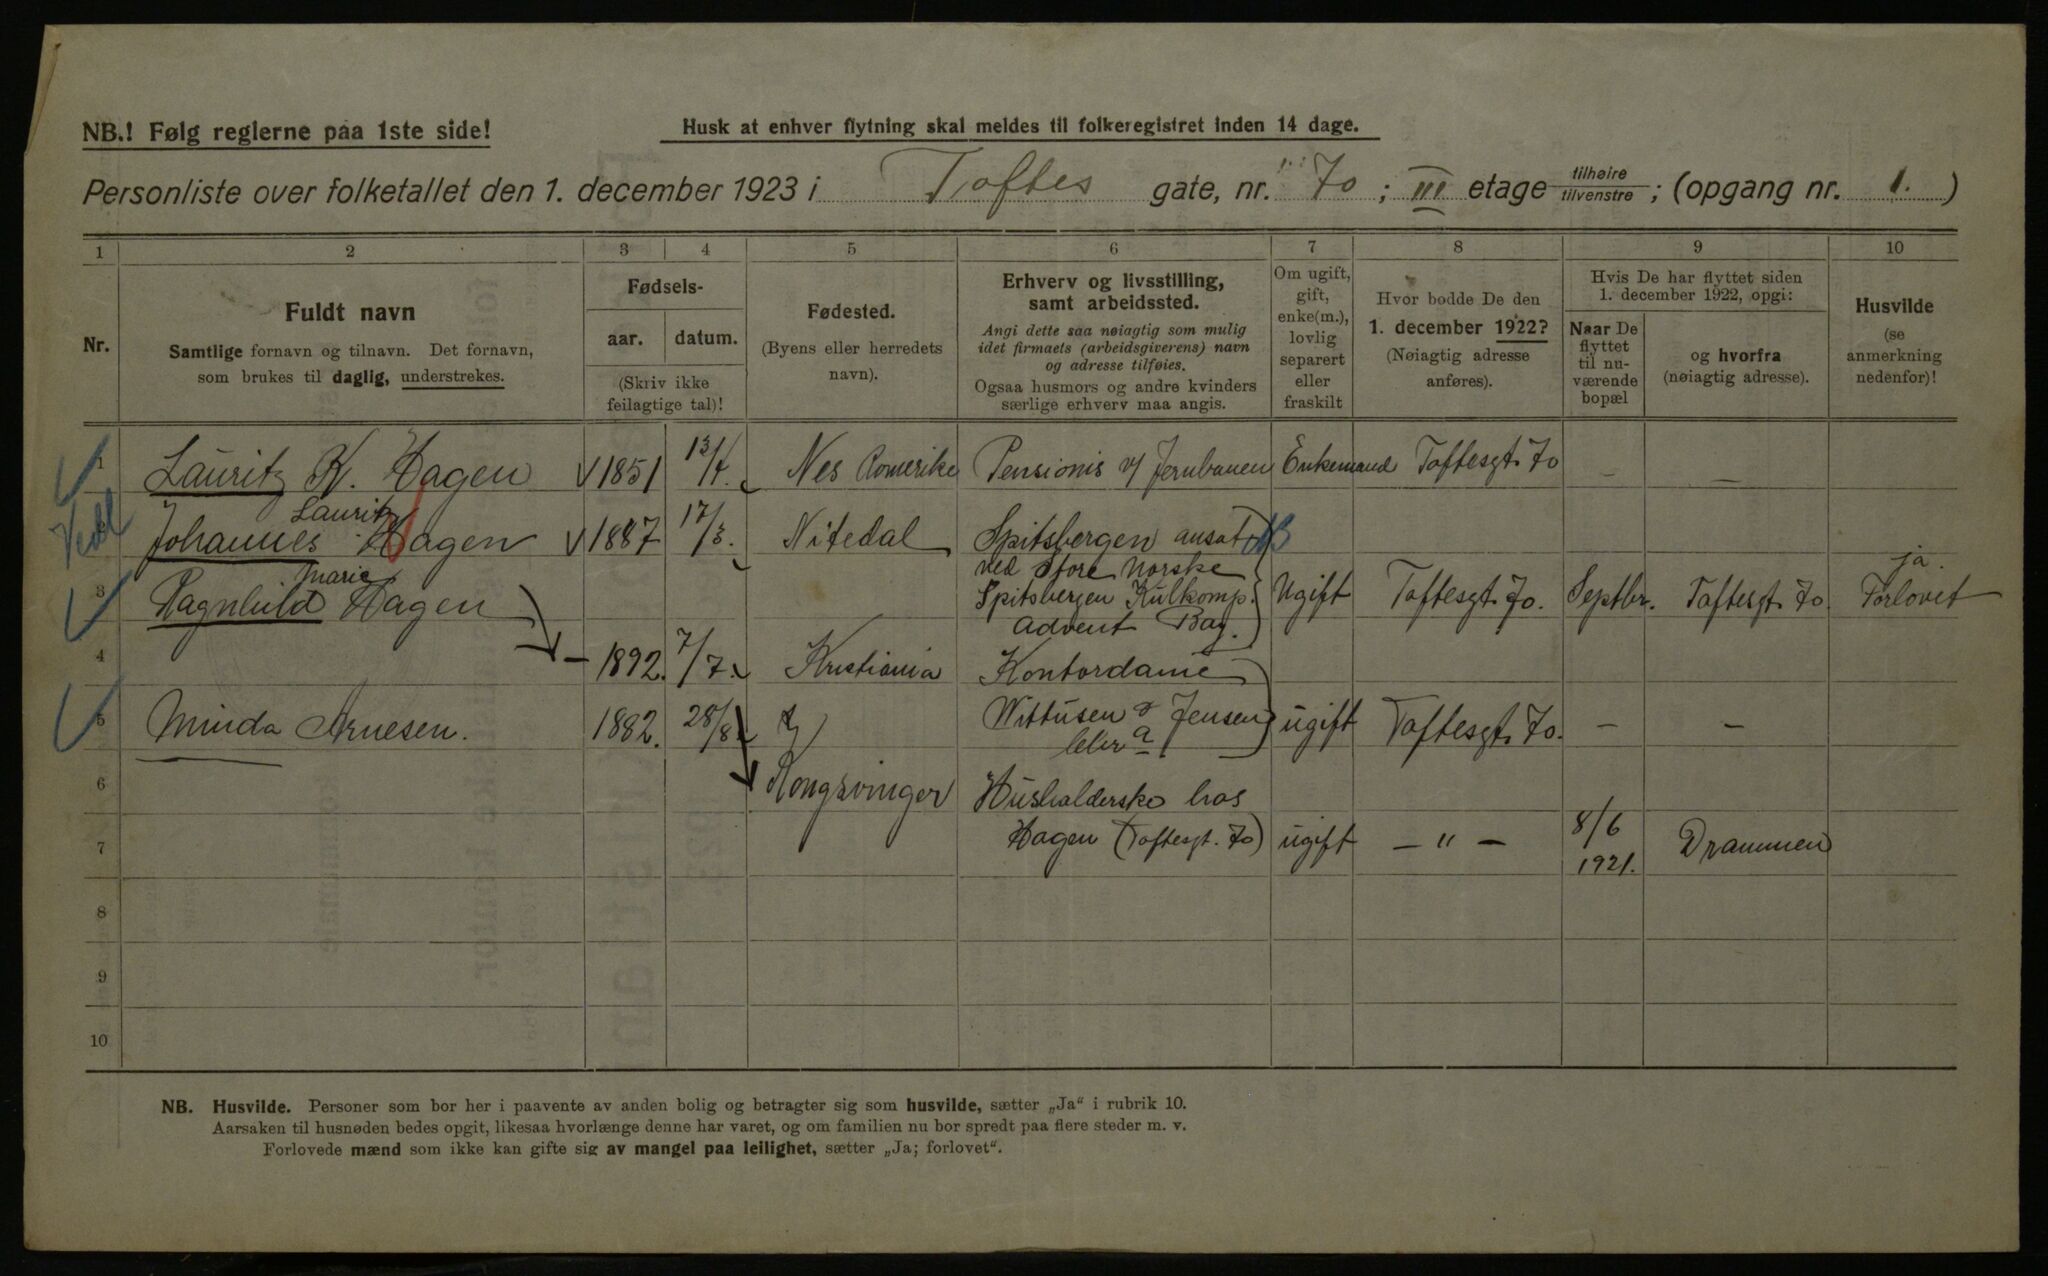 NB.! Følg reglerne paa 1ste side!
Husk at enhver flytning skal meldes til folkeregistret inden 14 dage.
Personliste over folketallet den 1. december 1923 i Toftes gate, nr. 70 ; III etage tilhøire tilvenstre ; (opgang nr. 1. )
1 2 3 4 5 6 7 8 9 10
Nr.
Fuldt navn
Samtlige fornavn og tilnavn. Det fornavn,
som brukes til daglig, understrekes.
Fødsels-
aar. datum.
(Skriv ikke
feilagtige tal)!
Fødested.
(Byens eller herredets
navn).
Erhverv og livsstilling,
samt arbeidssted.
Angi dette saa nøiagtig som mulig
idet firmaets (arbeidsgiverens) navn
og adresse tilføies.
Ogsaa husmors og andre kvinders
særlige erhverv maa angis.
Om ugift,
gift,
enke(m.),
lovlig
separert
eller
fraskilt
Hvor bodde De den
1. december 1922?
(Nøiagtig adresse
anføres).
Hvis De har flyttet siden
1. december 1922, opgi:
Naar De
flyttet
til nu-
værende
bopæl
og hvorfra
(nøiagtig adresse).
Husvilde
(se
anmerkning
nedenfor)!
1 Lauritz K. Hagen 1851 13/4. Nes Romerike Pensionis v/ Jernbanen Enkemand Toftesgt. 70 — —
Lauritz
Johannes Hagen 1887 17/3. Nitedal Spitsbergen ansat
ved Store Norske
ja.
Marie
3 Ragnhild Hagen Spitsbergen Kulkomp. Ugift Toftesgt. 70. Septbr. Toftesgt. 70 Forlovet
Advent Bay.
4 – 1892. 7/7. Kristiania Kontordame
5 Minda Arnesen. 1882. 28/8. Wittusen & Jensen ugift Toftesgt. 70. — —
6 Kongsvinger Husholderske hos
7 Hagen (Toftesgt. 70) ugift — " — 8/6 1921. Drammen
8
9
10
NB. Husvilde. Personer som bor her i paavente av anden bolig og betragter sig som husvilde, sætter „Ja“ i rubrik 10.
Aarsaken til husnøden bedes opgit, likesaa hvorlænge denne har varet, og om familien nu bor spredt paa flere steder m. v.
Forlovede mænd som ikke kan gifte sig av mangel paa leilighet, sætter „Ja; forlovet“.